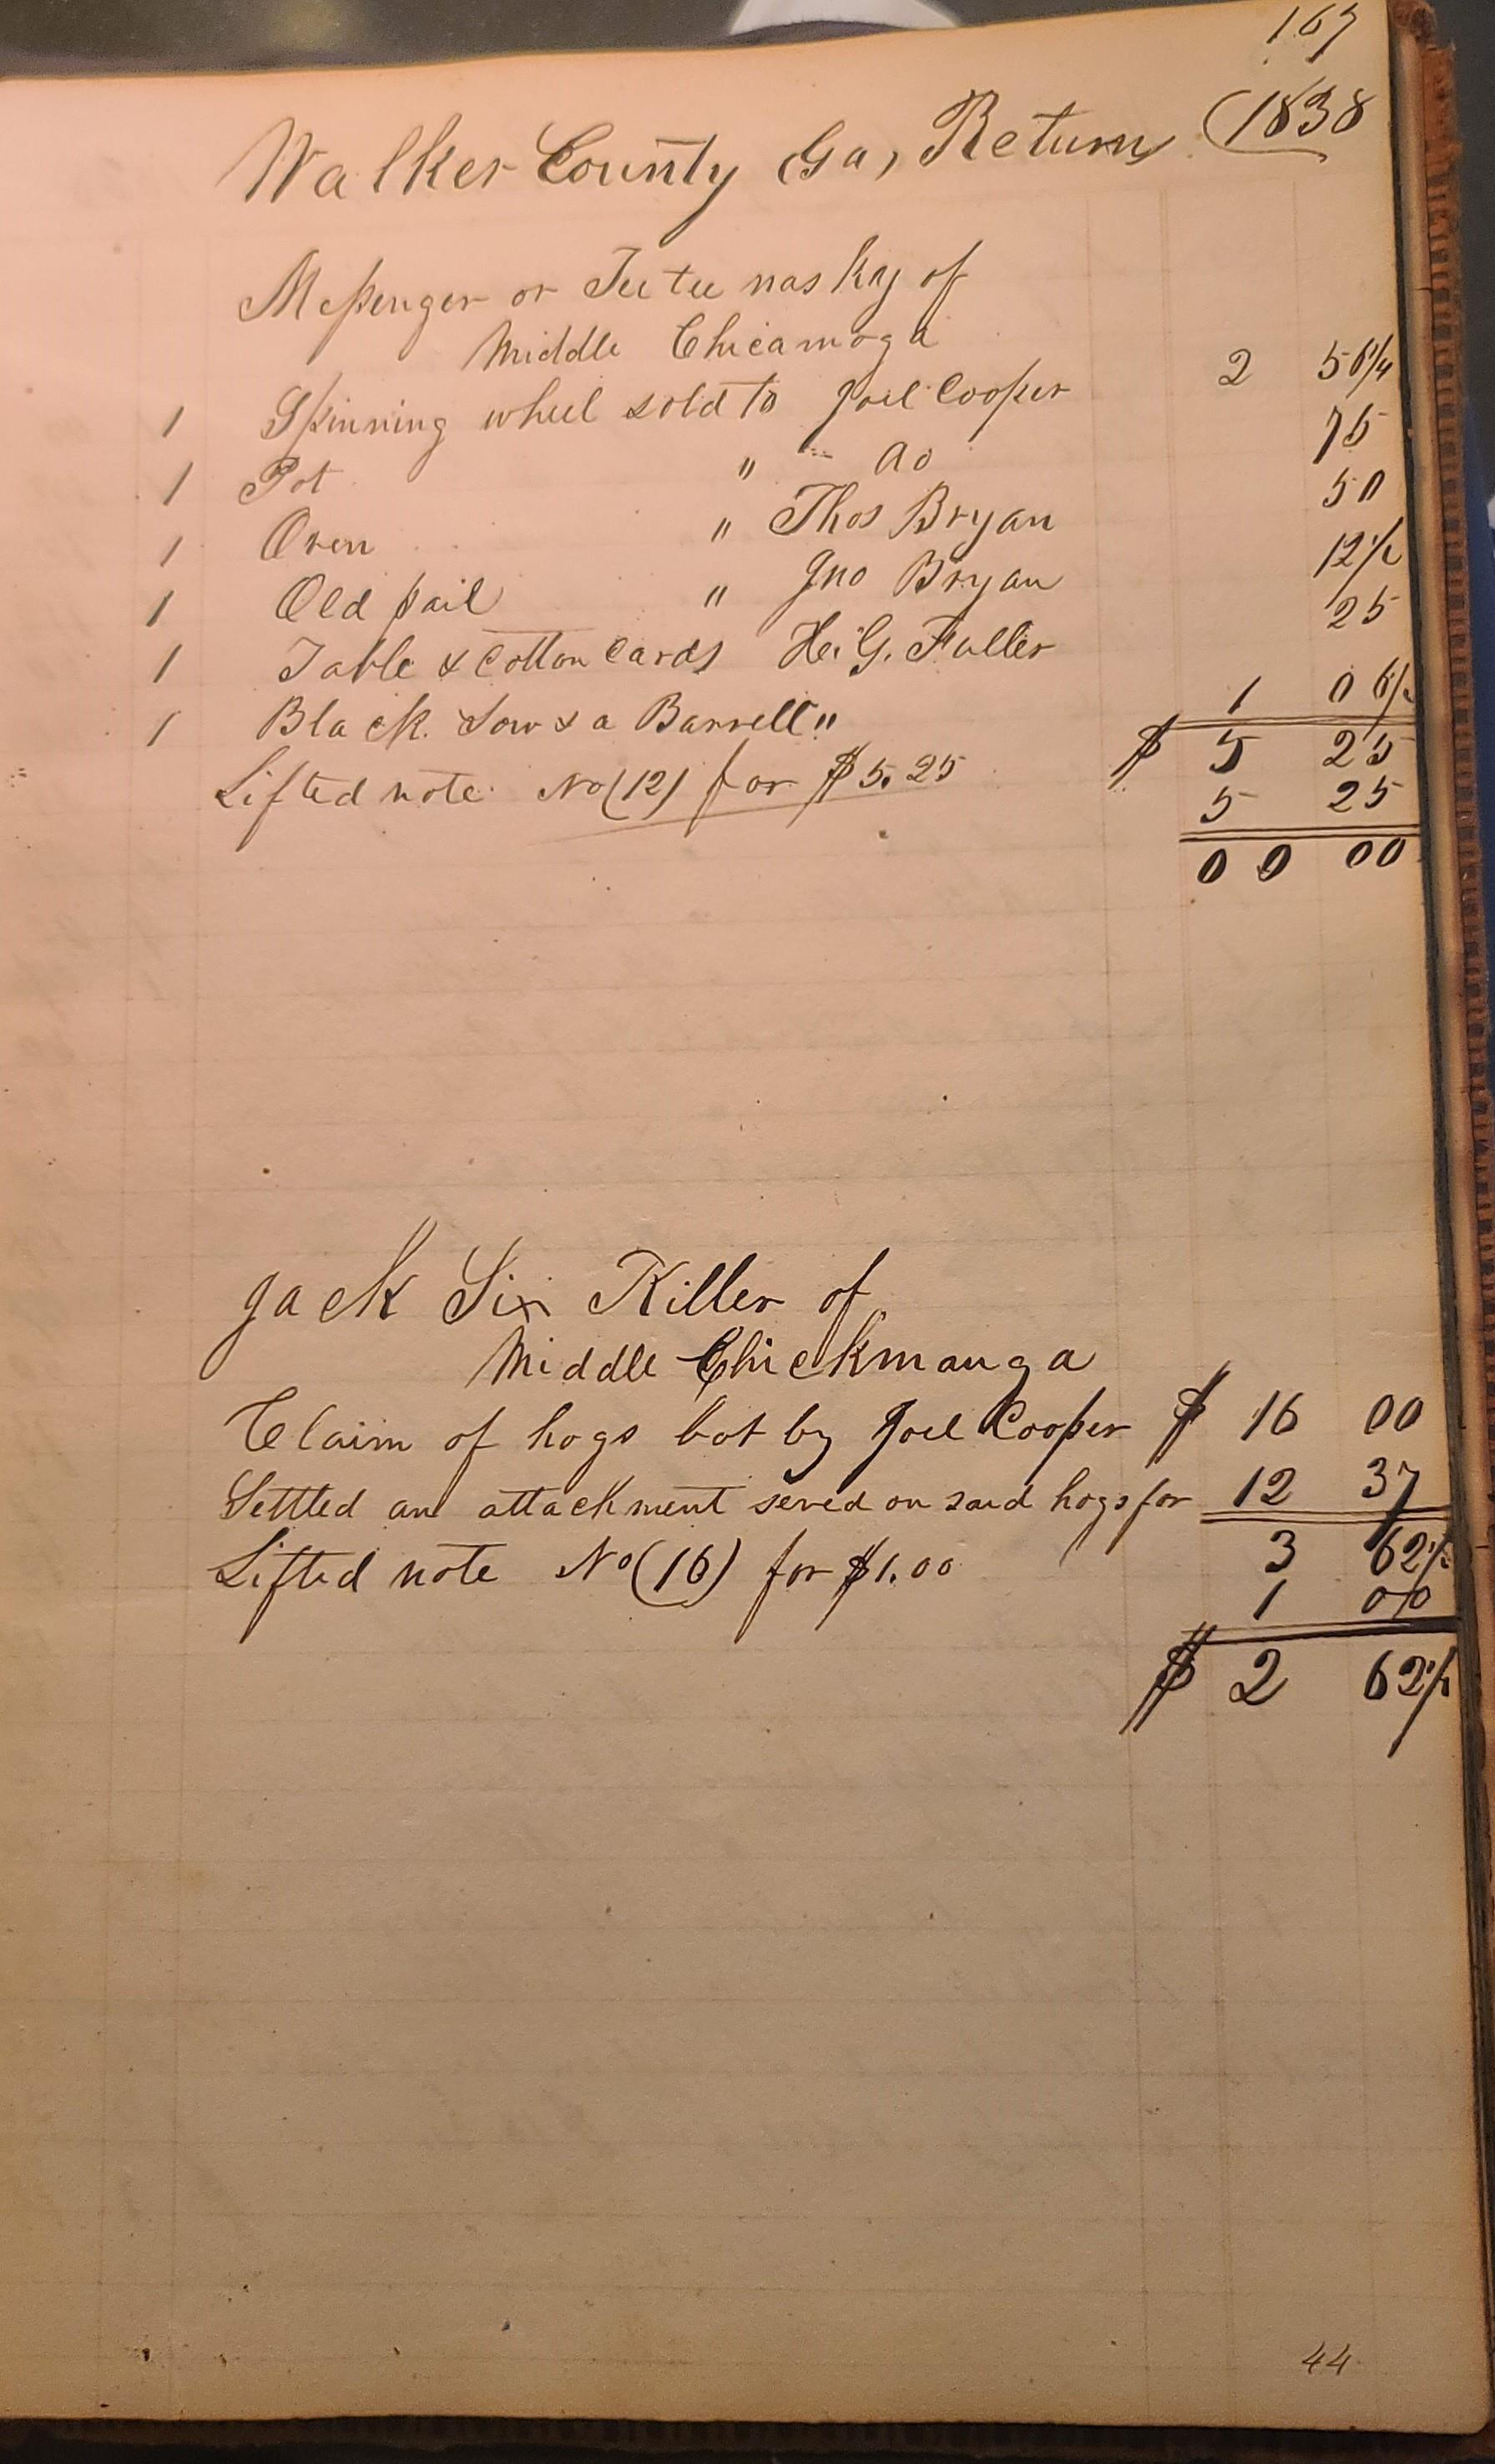 167
Walker County (Ga) Return (1838
Messenger or Tee tee nas ky of
Middle Chicamoga
1 Spinning wheel sold to Joel Cooper 2 56 1/4
1 Pot " " do 75
1 Oven " Thos Bryan 50
1 Old pail " Jno Bryan 12 1/2
1 Table & Cotton Cards H. G. Fuller 25
1 Black Sow & a Barrell " 1 06 1/4
$ 5 25
Lifted note No (12) for $5.25 5 25
00 00
Jack Six Killer of
Middle Chickmauga
Claim of hogs bot by Joel Cooper $ 16 00
Settled an attackment served on said hogs for 12 37
3 62 1/2
Lifted note No (16) for $1.00 1 00
$ 2 62 1/2
44